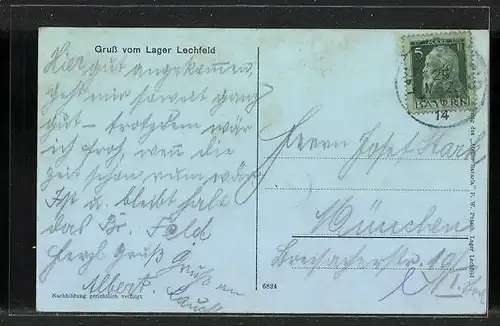 Gruß vom Lager Lechfeld
Hier gut angekommen,
geht mir soweit ganz
gut – trotzdem wär
ich froh, wen die
zeit schon rum wär
Ist u. bleibt halt
das Br. Feld
Herzl. Gruß
Albert.
Gruß an
Nachbildung gerichtlich verfolgt
6824
5
BAYERN
14
Herrn Josef Stark
München
Breisacherstr. 19/I.
F. W. Lager Lechfeld